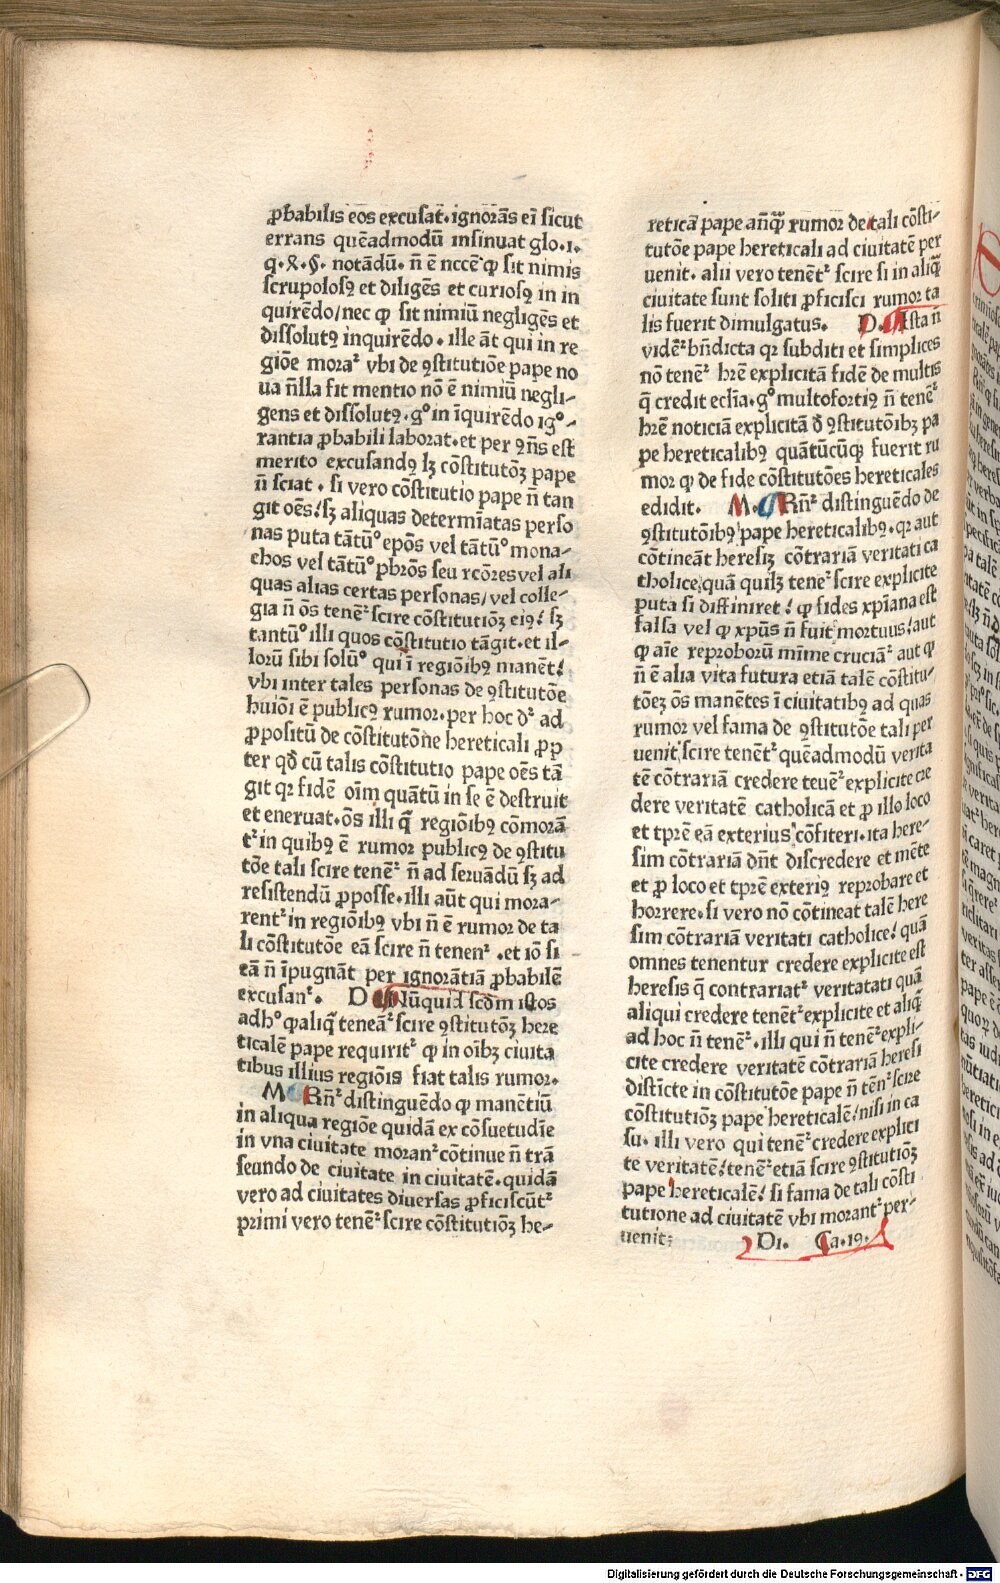 ꝓbabilis eos excusat. ignorãs eĩ sicut
errans quẽadmodũ insinuat glo. i.
q. ꝶ. §. notãdũ. ñ ẽ nccẽ ꝙ sit nimis
scrupolosꝯ et diligẽs et curiosꝯ in in
quirẽdo/nec ꝙ sit nimiũ negligẽs et
dissolutꝯ inquirẽdo. ille ãt qui in re
giõe moraꝛ vbi de ꝯstitutiõe pape no
ua ñlla fit mentio nõ ẽ nimiũ negli⸗
gens et dissolutꝯ. g° in ĩquirẽdo ig°⸗
rantia ꝓbabili laborat. et per ꝯñs est
merito excusandꝯ lꝫ cõstitutõꝫ pape
ñ sciat. si vero cõstitutio pape ñ tan
git oẽs! sꝫ aliquas determĩatas perso
nas puta tãtũ° epõs vel tãtũ° mona⸗
chos vel tãtũ° pbrõs seu rcõres vel ali
quas alias certas personas/ vel colle⸗
gia ñ õs tenẽꝛ scire cõstitutiõꝫ eiꝯ! sꝫ
tantũ° illi quos cõstitutio tãgit. et il⸗
lorũ sibi solũ° qui ĩ regiõibꝯ manẽt!
vbi inter tales personas de ꝯstitutõe
huiõi ẽ publicꝯ rumor. per hoc dꝛ ad
ꝓpositũ de cõstitutõne hereticali ꝓp
ter qđ cũ talis cõstitutio pape oẽs tã
git qꝛ fidẽ oĩm quãtũ in se ẽ destruit
et eneruat. õs illi q̃ regiõibꝯ cõmorã
tꝛ in quibꝯ ẽ rumor publicꝯ de ꝯstitu
tõe tali scire tenẽꝛ ñ ad seruãdũ sꝫ ad
resistendũ ꝓposse. illi aũt qui mora⸗
rentꝛ in regiõibꝯ vbi ñ ẽ rumor de ta
li cõstitutõe eã scire ñ tenenꝛ . et iõ si
eã ñ ĩpugnãt per ignorãtiã ꝓbabilẽ
excusanꝛ. D Nũquid scdm istos
adh° ꝙ aliq̃ teneãꝛ scire ꝯstitutõꝫ here
ticalẽ pape requiritꝛ ꝙ in oĩbꝫ ciuita
tibus illius regiõis fiat talis rumor.
M Rñꝛ distinguẽdo ꝙ manẽtiũ
in aliqua regiõe quidã ex cõsuetudĩe
in vna ciuitate moranꝛ cõtinue ñ trã
seundo de ciuitate in ciuitatẽ. quidã
vero ad ciuitates diuersas ꝓficiscũtꝛ
primi vero tenẽꝛ scire cõstitutiõꝫ he⸗
reticã pape añq̃ rumor de tali cõsti⸗
tutõe pape hereticali ad ciuitatẽ per
uenit. alii vero tenẽtꝛ scire si in aliq̃
ciuitate sunt soliti ꝓficisci rumor ta
lis fuerit diuulgatus. D. Ista ñ
vidẽꝛ bñdicta qꝛ subditi et simplices
nõ tenẽꝛ hrẽ explicitã fidẽ de multis
q̃ credit ecl̃ia. g° multofortiꝯ ñ tenẽꝛ
hrẽ noticiã explicitã đ ꝯstitutõibꝫ pa
pe hereticalibꝯ quãtũcũqꝫ fuerit ru
mor ꝙ de fide cõstitutões hereticales
edidit. M. Rñꝛ distinguẽdo de
ꝯstitutõibꝯ pape hereticalibꝯ. qꝛ aut
cõtineãt heresiꝫ cõtrariã veritati ca
tholice quã quilꝫ tenẽꝛ scire explicite
puta si diffiniret! ꝙ fides xp̃iana est
falsa vel ꝙ xp̃us ñ fuit mortuus! aut
ꝙ aĩe reproborũ mĩme cruciãꝛ aut ꝙ
ñ ẽ alia vita futura etiã talẽ cõstitu⸗
tõeꝫ õs manẽtes ĩ ciuitatibꝯ ad quas
rumor vel fama de ꝯstitutõe tali per
uenit scire tenẽtꝛ quẽadmodũ verita
tẽ cõtrariã credere teuẽꝛ explicite cre
dere veritatẽ catholicã et ꝓ illo loco
et tprẽ eã exterius cõfiteri. ita here⸗
sim cõtrariã dñt discredere et mẽte
et ꝓ loco et tprẽ exteriꝯ reprobare et
horrere. si vero nõ cõtineat talẽ here
sim cõtrariã veritati catholice! quã
omnes tenentur credere explicite est
heresis q̃ contrariatꝛ veritatati quã
aliqui credere tenẽtꝛ explicite et aliq̃
ad hoc ñ tenẽꝛ. illi qui ñ tenẽꝛ expli⸗
cite credere veritatẽ cõtrariã heresi
distĩcte in cõstitutõe pape ñ tẽnꝛ scire
cõstitutiõꝫ pape hereticalẽ! nisi in ca
su. illi vero qui tenẽꝛ credere explici
te veritatẽ! tenẽꝛ etiã scire ꝯstitutiõꝫ
pape hereticalẽ! si fama de tali cõsti
tutione ad ciuitatẽ vbi morantꝛ per⸗
uenit; Di. Ca. 19.
Digitalisierung gefördert durch die Deutsche Forschungsgemeinschaft - DFG